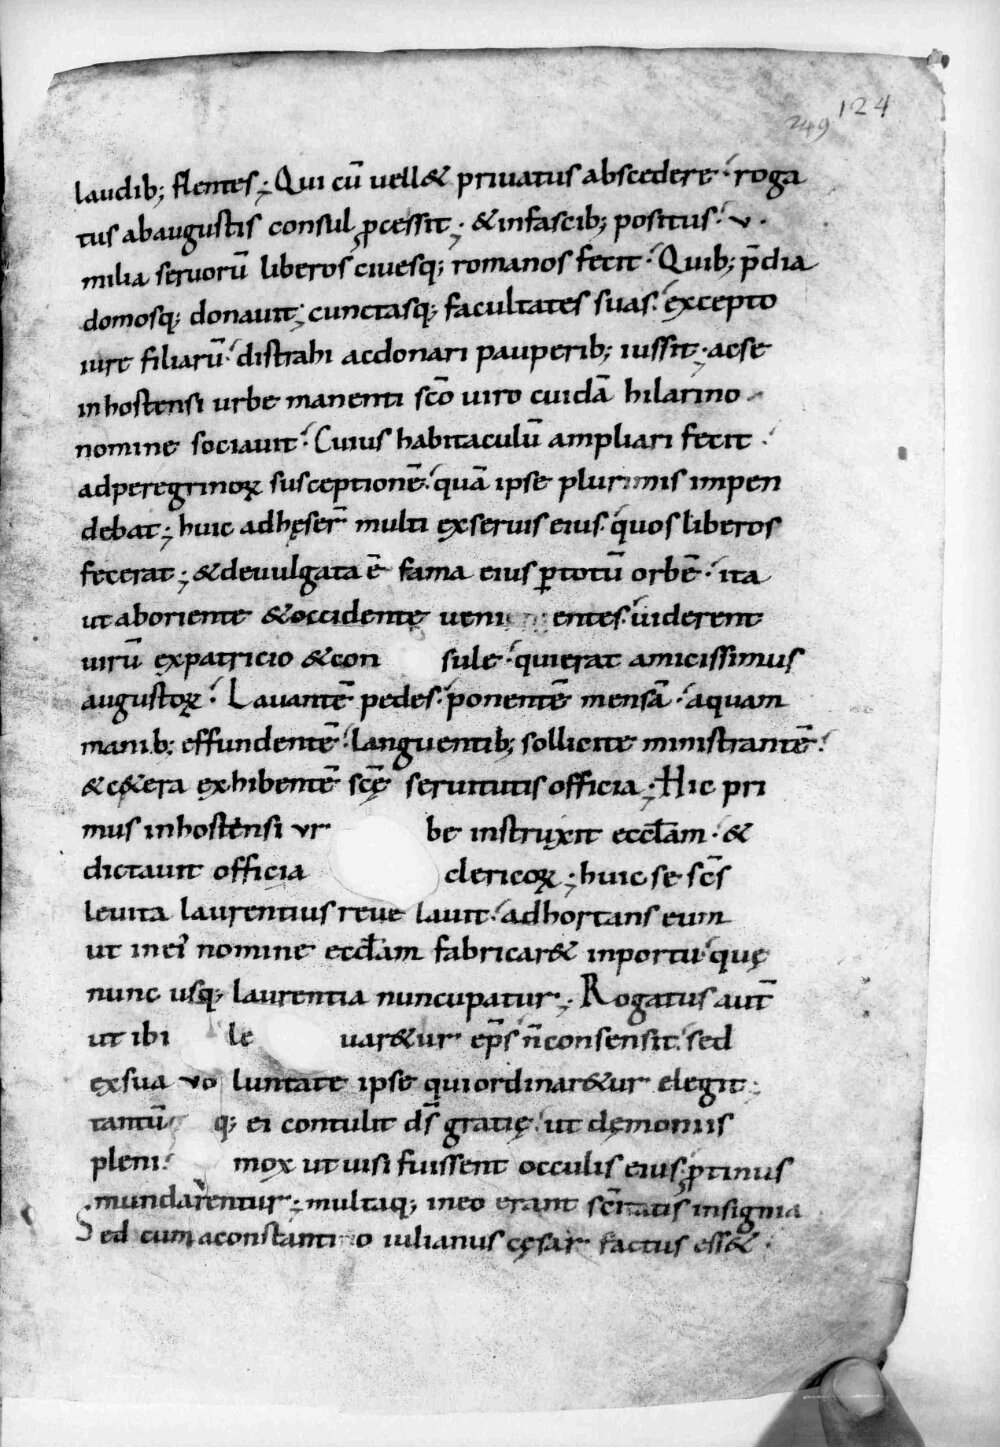 124
249
laudib; flentes; Qui cū uell& priuatus abscedere roga
tus abaugustis consul ꝓcessit; &infascib; positus v.
milia seruorū liberos ciuesq; romanos fecit. Quib; p̄dia
domosq; donauit; cunctasq; facultates suas. excepto
iure filiarū. distrahi acdonari pauperib; iussit; acse
inhostensi urbe manenti sc̄o uiro cuidā hilarino
nomine sociauit. Cuius habitaculū ampliari fecit.
adperegrinoꝝ susceptionē. quā ipse plurimis impen
debat; huic adhęser̄ multi exseruis eius. quos liberos
fecerat; &deuulgata ē fama eius ꝑtotū orbē. ita
ut aboriente &occidente ueni entes. uiderent
uirū expatricio &con sule. quierat amicissimus
augustoꝝ. Lauantē pedes. ponentē mensā. aquam
manib; effundentē. languentib; sollicite ministrantē.
&c&era exhibentē sc̄ę seruitutis officia; Hic pri
mus inhostensi vr be instruxit eccl̄am. &
dictauit officia clericoꝝ; huic se sc̄s
leuita laurentius reue lauit. adhortans eum
ut inei' nomine eccl̄am fabricar& inportu. quę
nunc usq; laurentia nuncupatur; Rogatus aut̄
ut ibi le uar&ur ep̄s n̄consensit. sed
exsua vo luntate ipse quiordinar&ur elegit;
tantū q; ei contulit ds̄ gratię. ut dęmoniis
pleni. mox ut uisi fuissent occulis eius. ꝓtinus
mundarentur; multaq; ineo erant sc̄itatis insignia
Sed cum aconstantino iulianus cęsar factus ess&.